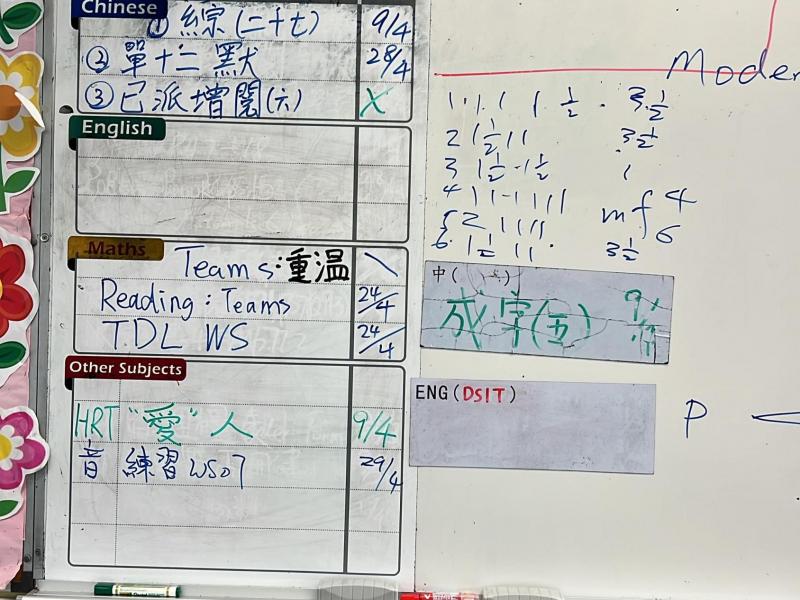 Chinese
① 綜(二十七) 9/4
② 單十二默 28/4
③ 已派增閱(六) X
English
Maths
Teams:重溫 \
Reading: Teams 24/4
T.DL WS 24/4
Other Subjects
HRT "愛" 人 9/4
音 練習 WS07 29/4
Moder
1. 1. 1 1 1/2 . 3.1/2
2 1 1/2 1 1 3 1/2
3 1 1/2 - 1 1/2 1
4 1 1 - 1 1 1 1 m f 4
5 2 1 1 1 1 6
6. 1 1/2 1 1. 3 1/2
中(
成字(五)
ENG(DSIT)
P